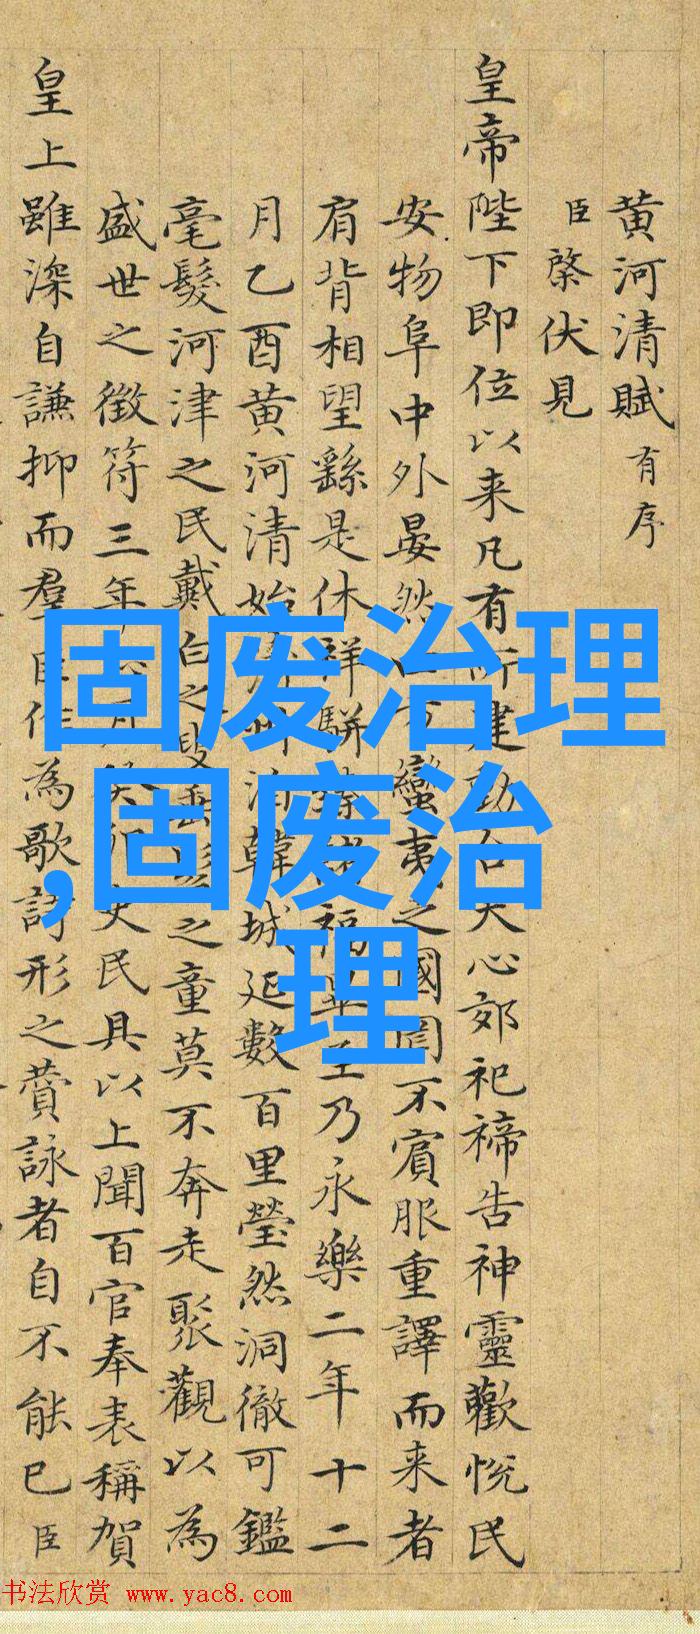 黄河清賦有序
臣棨伏見
皇帝陛下即位以来凡有所建動合天心郊祀禘告神靈歡悦民
安物阜中外晏然 蠻夷之國罔不賓服重譯而来者
肩背相望繇是休祥駢臻 福 乃永樂二年十二
月乙酉黄河清始 城延數百里瑩然洞徹可鑑
毫髮河津之民戴白之叟垂髫之童莫不奔走聚觀以為
盛世之徵符三年 史民具以上聞百官奉表稱賀
皇上雖深自謙抑而羣臣作為歌詩形之賛詠者自不能已臣
固废治理
,固废治
理
书法欣赏 www.yac8.com